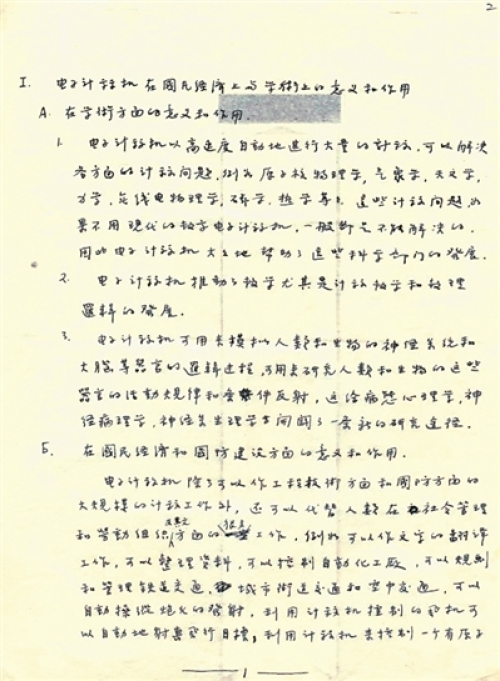 2
I. 电子计算机在國民经济上与学術上的意义和作用
A. 在学術方面的意义和作用.
1. 电子计算机以高速度自動地進行大量的计算, 可以解决
各方面的计算问题, 例如原子核物理学, 气象学, 天文学,
力学, 无线电物理学, 声学, 热学等. 這些计算问题, 如
果不用现代的数字电子计算机, 一般都是不能解决的.
因此电子计算机大大地帮助了這些科学部门的發展.
2. 电子计算机推動了数学尤其是计算数学和数理
邏輯的發展.
3. 电子计算机可用来模拟人類和生物的神经系统和
大腦等器官的邏輯过程, 可用来研究人類和生物的這些
器官的活動规律和条件反射, 這给病态心理学, 神
经病理学, 神经系生理学等闻闢了一条新的研究途径.
B. 在國民经济和國防建设方面的意义和作用.
电子计算机除了可以作工程技術方面和國防方面的
大规模的计算工作外, 还可以代替人類在社会管理
和劳動组织方面的工作, 例如可以作文字的翻译
工作, 可以整理资料, 可以控制自動化工廠, 可以规划
和管理铁道交通, 城市街道交通和空中交通, 可以
自動操纵炮火的發射, 利用计算机控制的飞机可
以自動地射擊飛行目標; 利用计算机来控制一个有原子
1